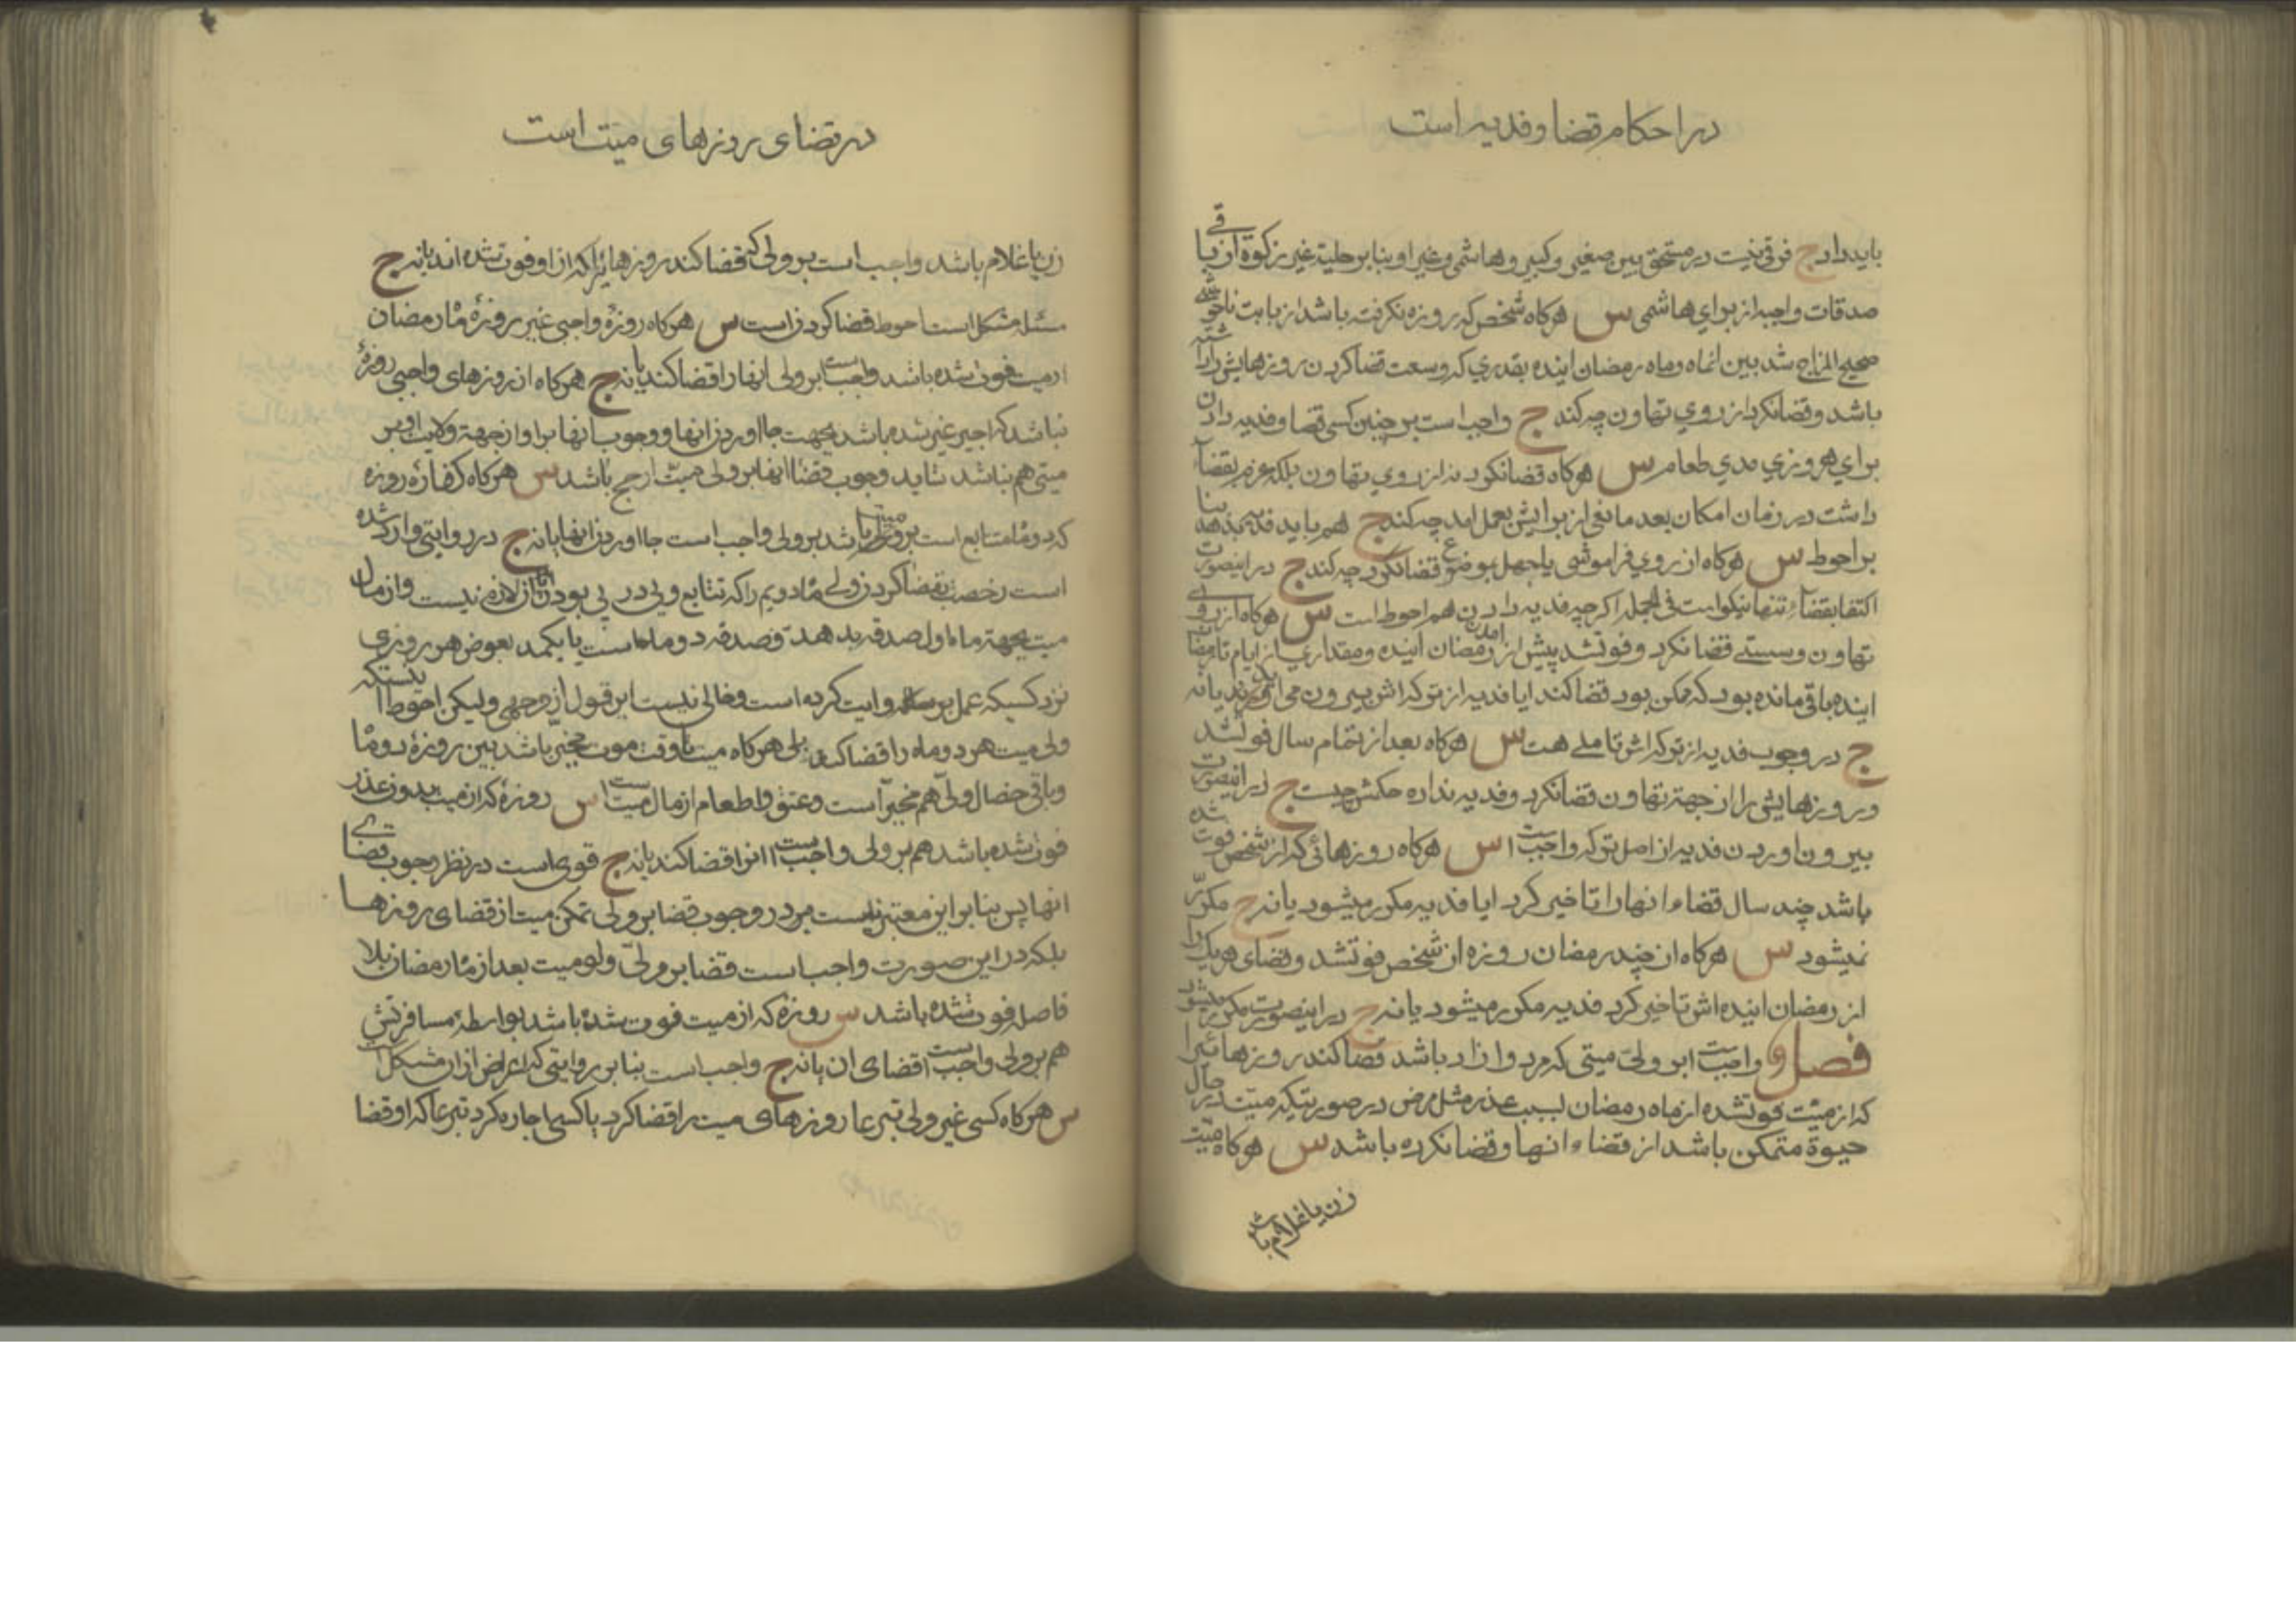 در احکام قضا و فدیه است
باید داد ج فرقی نیست در مستحق بین صغیر و کبیر و هاشمی و غیر او بنابر حلیة غیر زکوة از باقی
صدقات واجبه از برای هاشمی س هرکاه شخص که روزه نکرفته باشد از بابت ناخوشی
صحیح المزاج شد بین انماه و ماه رمضان اینده بقدری که وسعت قضا کردن روزهایش را داشته
باشد و قضا نکرد از روی تهاون چه کند ج واجب است بر چنین کسی قضا و فدیه دادن
برای هر روزی مدی طعام س هرکاه قضا نکرد نه از روی تهاون بلکه عزم بقضآء
داشت در زمان امکان بعد مانعی از برایش بعمل امد چه کند ج هم باید فدیه بدهد بنا
بر احوط س هرکاه از روی فراموشی یا جهل بموضوع قضا نکرد چه کند ج در اینصورت
اکتفا بقضآء تنها نیکو است فی الجمله اکرچه فدیه دادن هم احوط است س هرکاه از روی
تهاون و سستی قضا نکرد و فوتشد پیش از امدن رمضان اینده و مقداری از ایام تا رمضا
اینده باقی مانده بود که ممکن بود قضا کند ایا فدیه از ترکه اش بیرون می اورند یا نه
ج در وجوب فدیه از ترکه اش تاملی هست س هرکاه بعد از تمام سال فوتشد
و روزهایش را از جهة تهاون قضا نکرد و فدیه نداده حکمش چیست ج در اینصورت
بیرون اوردن فدیه از اصل ترکه واجبست س هرکاه روزهائی که از شخص فوت شده
باشد چند سال قضاء انها را تاخیر کرد ایا فدیه مکرر میشود یا نه ج مکرّر
نمیشود س هرکاه از چند رمضان روزه از شخص فوتشد و قضای هر یک را
از رمضان اینده اش تاخیر کرد فدیه مکرر میشود یا نه ج در اینصورت مکرر میشود
فصل و واجبست بر ولیّ میتی که مرد و ازاد باشد قضا کند روزهائیرا
که از میّت فوتشده از ماه رمضان بسبب عذر مثل مرض در صورتیکه میّت در حال
حیوة متمکن باشد از قضاء انها و قضا نکرده باشد س هرکاه میّت
زن یا غلام باشد
در قضای روزهای میّت است
زن یا غلام باشد واجب است بر ولی که قضا کند روزهائیرا که از او فوت شده اند یا نه ج
مسئله مشکل است احوط قضا کردن است س هرکاه روزۀ واجبی غیر روزۀ ماه رمضان
از میت فوت شده باشد واجبست بر ولی انها را قضا کند یا نه ج هرکاه از روزهای واجبی روزۀ
نباشد که اجیر غیر شده باشد بجهت جا اوردن انها و وجوب انها بر او از جهة ولایت او بر
میتی هم نباشد شاید وجوب قضا انها بر ولی میّت ارجح باشد س هرکاه کفارۀ روزه
که دو ماه متتابع است بر میّت باشد بر ولی واجب است جا اوردن انها یا نه ج در روایتی وارد شده
است رخصت بقضا کردن ولی ماه دویم را که تتابع و پی در پی بودن ان لازم نیست و از مال
میت بجهة ماه اول صدقه بدهد و صدقه دو ماه است یا یکمد بعوض هر روزی
نزد کسیکه عمل روایت کرده است و خالی نیست این قول از وجهی ولیکن احوط اینستکه
ولی میت هر دو ماه را قضا کند بلی هرکاه میت تا وقت موت مخیر باشد بین روزۀ دو ماه
و باقی خصال ولی هم مخیر است و عتق و اطعام از مال میت است س روزۀ که از میت بدون عذر
فوت شده باشد هم بر ولی واجبست انرا قضا کند یا نه ج قوی است در نظر وجوب قضای
انها پس بنابر این معتبر نیست در وجوب قضا بر ولی تمکن میت از قضای روزها
بلکه در این صورت واجب است قضا بر ولی ولو میت بعد از ماه رمضان بلا
فاصله فوت شده باشد س روزۀ که از میت فوت شده باشد بواسطۀ مسافرتش
هم بر ولی واجبست قضای ان یا نه ج واجب است بنابر روایتی که اعراض از ان مشکل است
س هرکاه کسی غیر ولی تبرعا روزهای میت را قضا کرد یا کسی اجاره کرد تبرعا که او قضا